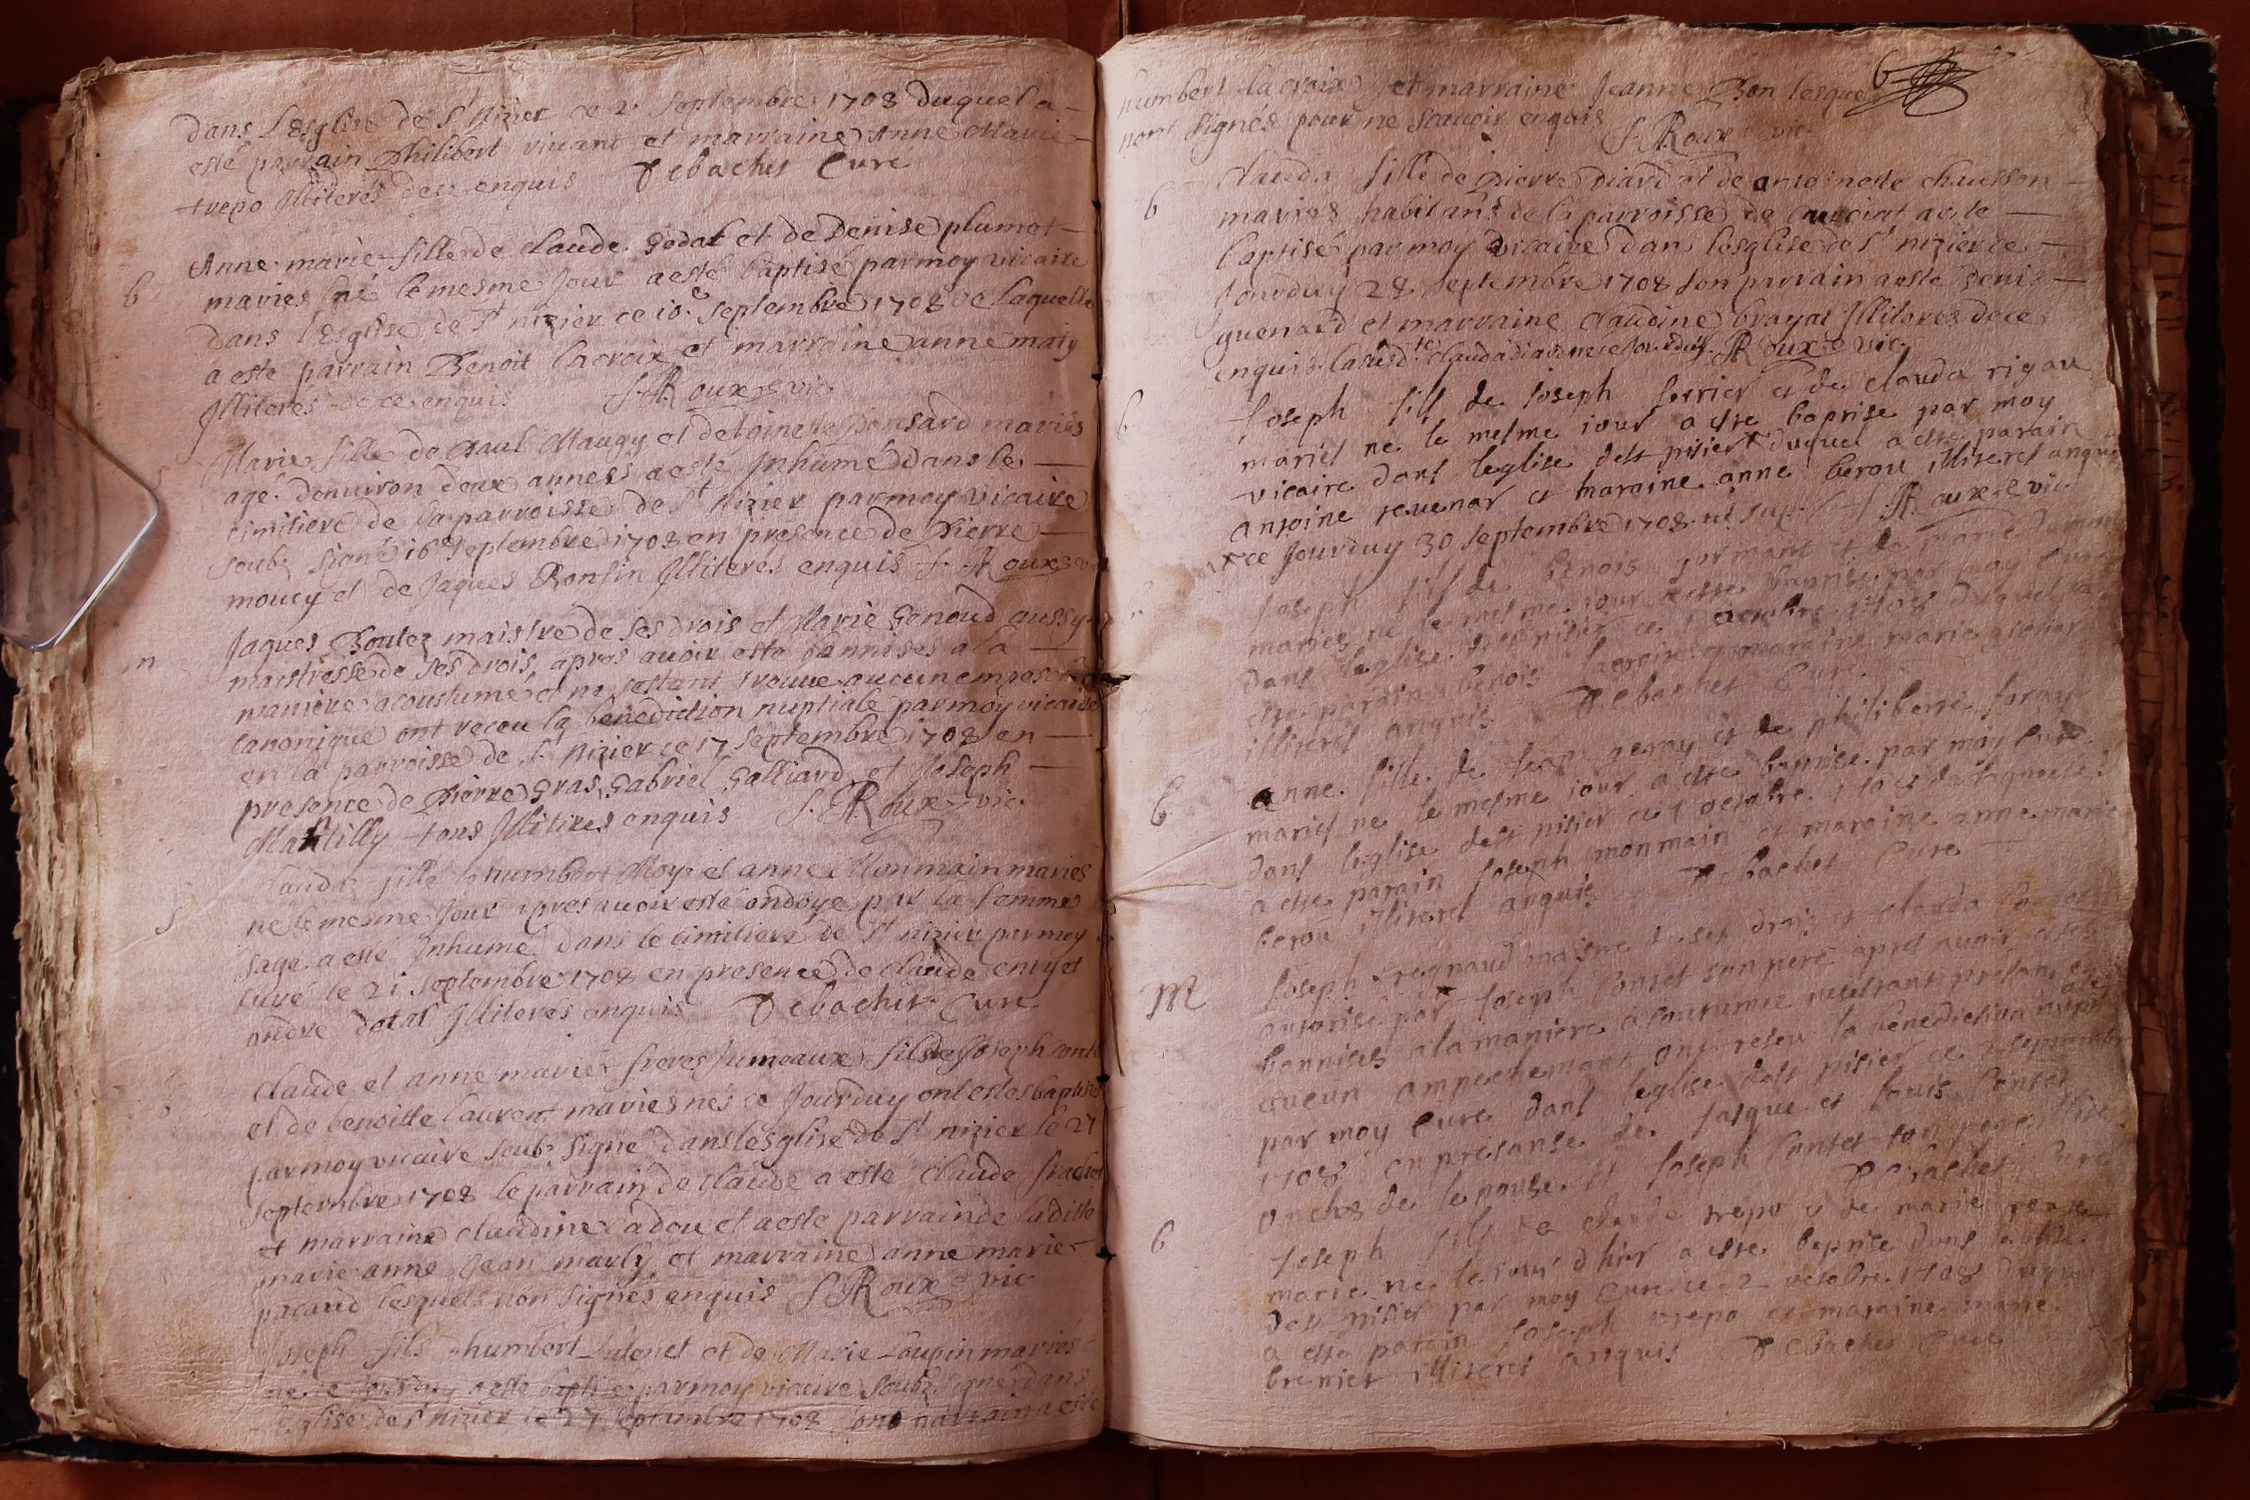 dans l'Esglise de St Nizier ce 2e Septembre 1708 duquel a
esté parrain Philibert vincent et marraine Anne Marie
trepo Illiterés de ce enquis Debachet Curé
b
Anne marie fille de claude godat et de Denise plumet
mariés né le mesme Jour a esté baptisé par moy vicaire
dans l'Esglise de St nizier ce 10e Septembre 1708 de laquelle
a esté parrain Benoit lacroix et marraine anne mary
Illiterés de ce enquis S. Roux vic.
Marie fille de Paul Maugy et de ponsard mariés
agé denuiron deux annees a esté Inhumé dans le
cimitiere de la parroisse de St Nizier par moy vicaire
soubz signé 16e Septembre 1708 en presence de Pierre
moucy et de Jaques Ronsin Illiteres enquis S. Roux
m
Jaques Boulez maistre de ses drois et Marie Genoud aussy
maistresse de ses drois, apres auoir esté bannises a la
maniere acoustumé et ne sestant trouue aucun
canonique ont receu la benediction nuptiale par moy vicaire
en la parroisse de St Nizier ce 17 Septembre 1708 en
presence de Pierre Gras, Gabriel Galliard et Joseph
Mantilly tous Illitires enquis S. Roux vic.
S
Clauda fille humbert Moyr et anne Monmain mariés
né le mesme Jour apres auoir esté ondoyé par la femme
sage a esté Inhumé dans le cimitiere de St nizier par moy
curé le 21 Septembre 1708 en presence de claude et
andre dotal Illiteres enquis Debachet Curé
b
Claude et anne marie freres Jumeaux fils de Joseph
et de benoitte laurent mariés nés ce Jourduy ont estés baptisés
par moy vicaire soubz signé dans lesglise de St nizier le 27
septembre 1708 le parrain de claude a esté claude
et marraine claudine adou et a esté parrain de ladite
marie anne Jean marly et marraine anne marie
pacaud lesquels non signés enquis S. Roux vic
Joseph fils humbert et de Marie Loupin mariés
né ce Jourduy a esté baptisé par moy vicaire soubz signé dans
l'Esglise de St nizier le 27 Septembre 1708 son parrain a esté
6
humbert lacroix et marraine Jeanne Bon lesquels
nont signés pour ne scauoir enquis S. Roux vic
b
Clauda fille de Pierre Diard et de antoinette chausson
mariés habitans de la parroisse de a esté
baptisé par moy vicaire dans lesglise de St nizier ce
Jourduy 28 septembre 1708 son parrain a esté Denis
guenard et marraine claudine brayat Illiteres de ce
enquis ladite clauda diard né ce Jourduy S. Roux vic.
b
Joseph fils de Joseph ferrier et de clauda rigau
mariés ne le mesme iour a etté baptisé par moy
vicaire dans leglise de St nisier + duquel a etté parain
antoine reuenar et maraine anne berou illiteres anquis
+ ce Jourduy 30 septembre 1708 S. Roux vic
Joseph fils de benois et de marie
mariés ne le mesme iour a etté baptisé par moy Curé
dans leglise de St nisier ce 1 octobre 1708 duquel a
etté parain benois lacroix et maraine marie
illiteres anquis Debachet Curé
b
anne fille de geray et de philiberte foray
mariés ne le mesme iour a etté baptisé par moy Curé
dans leglise de St nisier ce 1 octobre 1708 de laquelle
a etté parain Joseph monmain et maraine anne marie
berou illiteres anquis Debachet Curé
M
Joseph regnaud maitre de ses drois et clauda
autorisé par Joseph Contet son pere apres auoir estés
bannises a la maniere acoutumee ne sestant presanté
aucun ampeschemant ont reseu la benediction nuptiale
par moy Curé dans leglise de St nisier ce 2 septembre
1708 en presanse de Jasque et louis Contet
oncles de lepouse et Joseph Contet son pere
Debachet Curé
b
Joseph fils de claude trepo et de marie
mariés ne le iour dhier a etté baptisé dans leglise
de St nisier par moy Curé ce 2 octobre 1708 duquel
a etté parain Joseph trepo et maraine marie
brenier illiteres anquis Debachet Curé